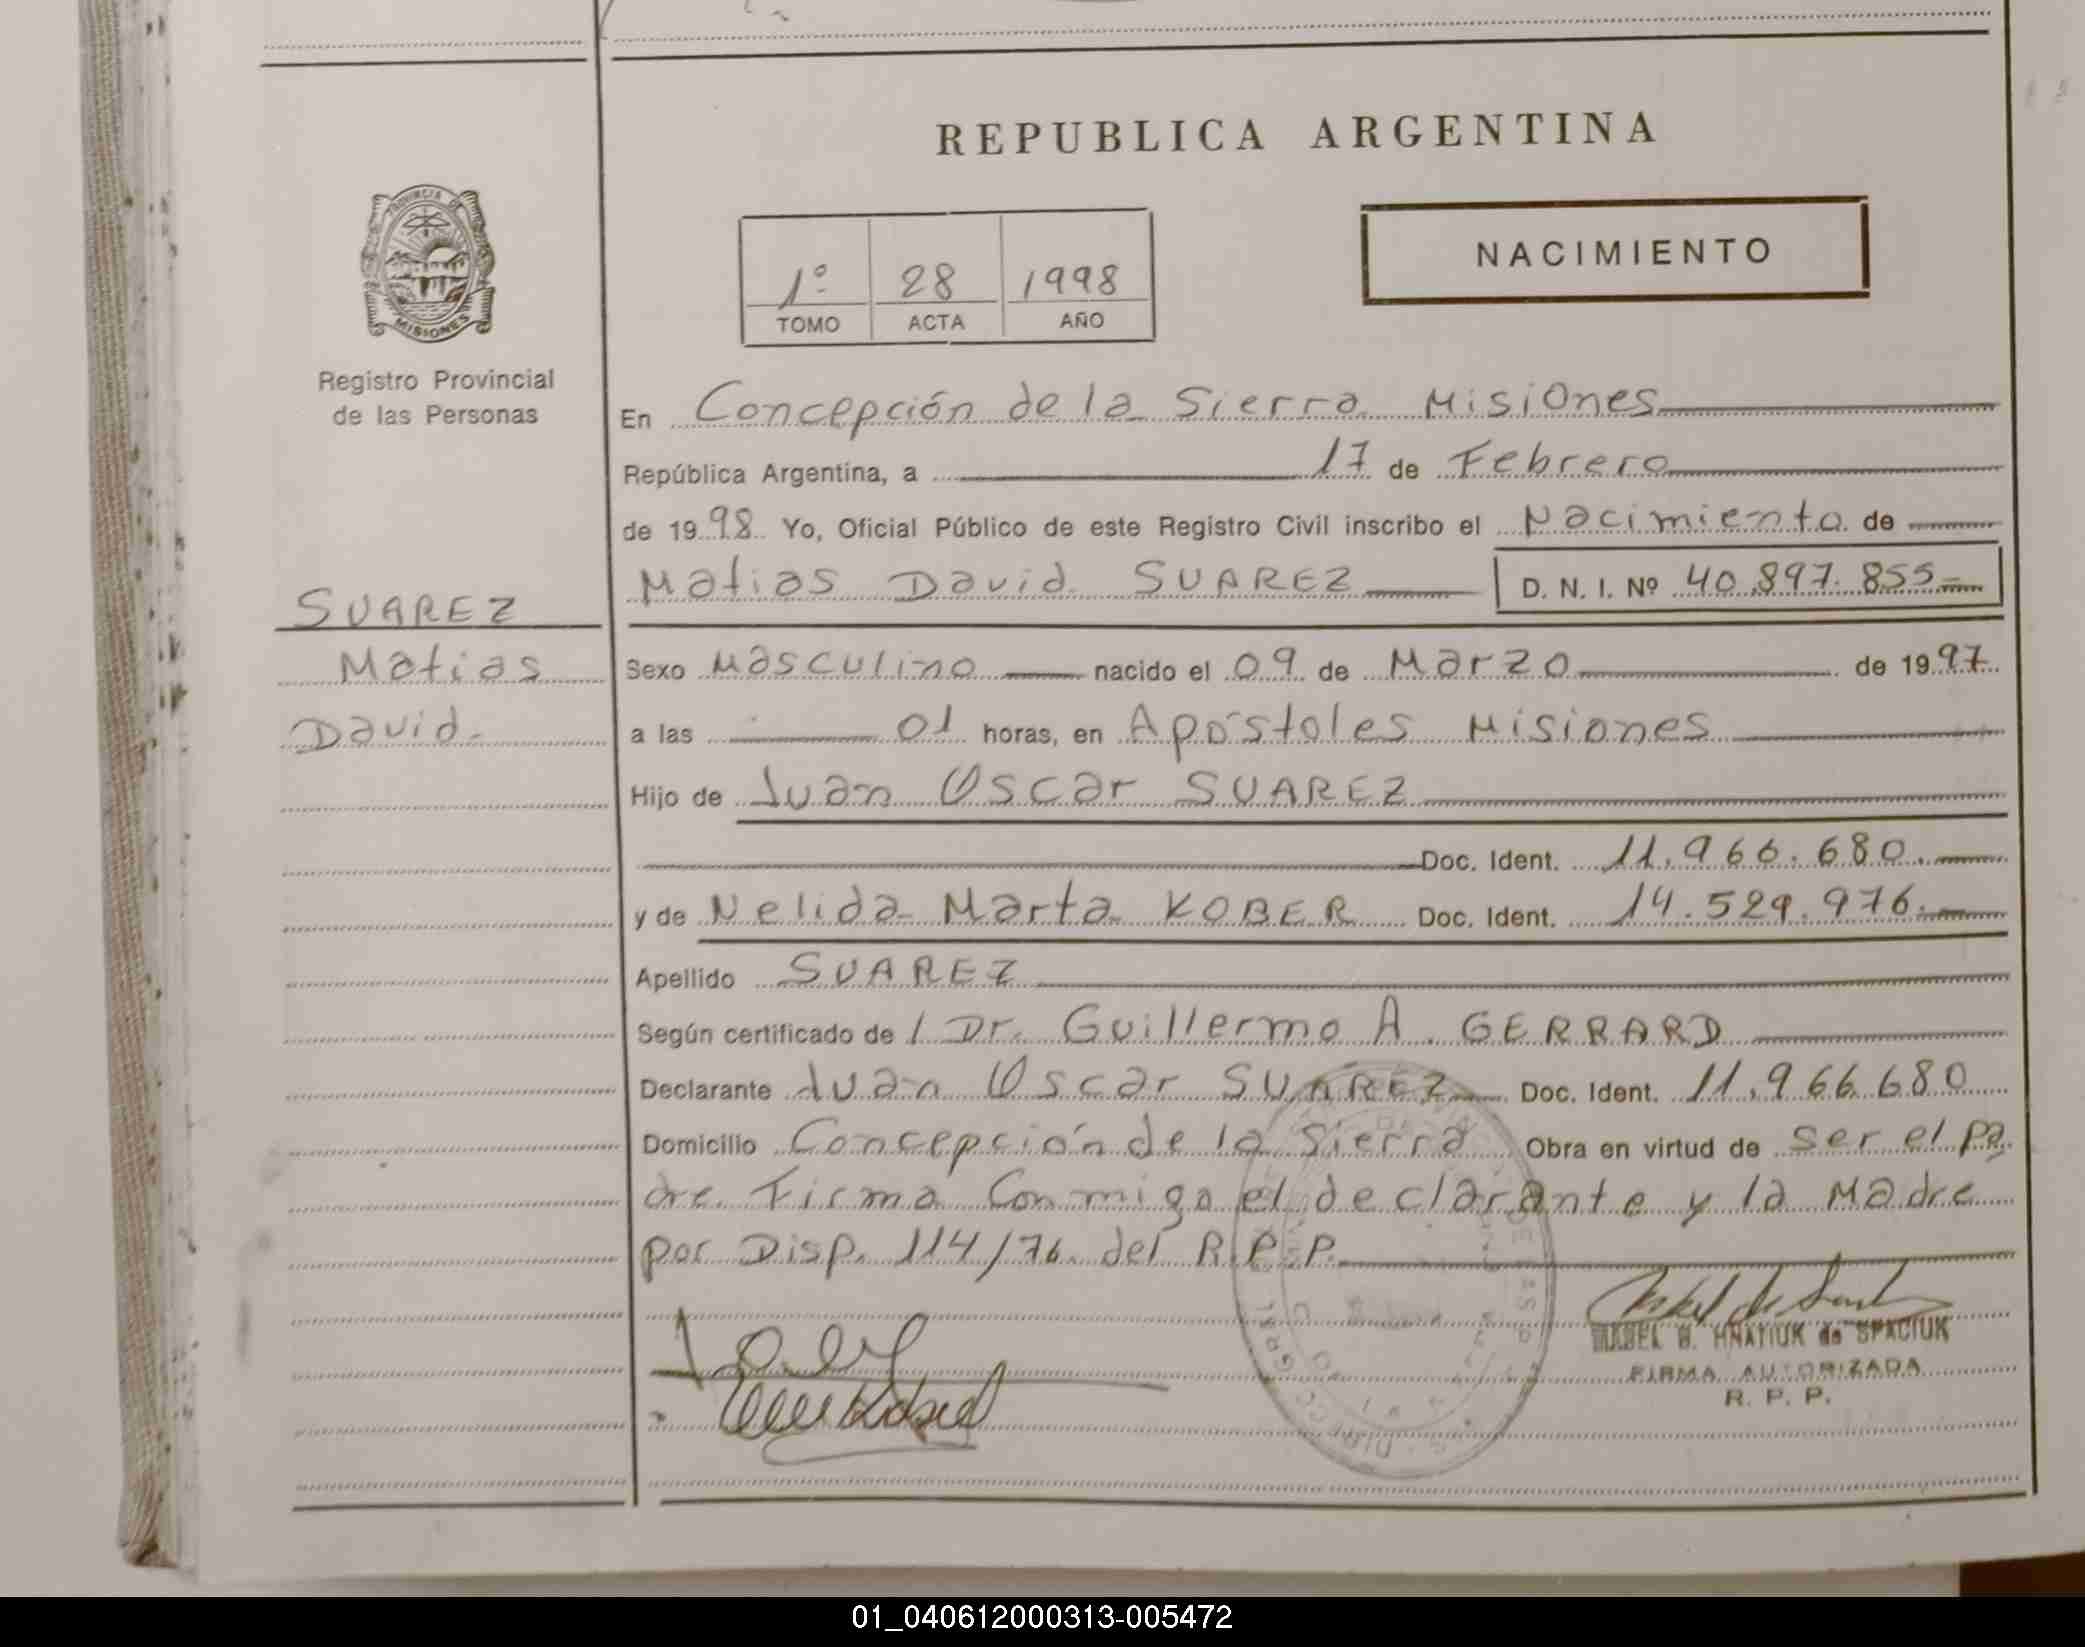 REPUBLICA ARGENTINA
PROVINCIA DE
MISIONES
Registro Provincial
de las Personas
1º 28 1998
TOMO ACTA AÑO
NACIMIENTO
En Concepción de la Sierra Misiones
República Argentina, a 17 de Febrero
de 1998 Yo, Oficial Público de este Registro Civil inscribo el Nacimiento de
Matias David SUAREZ D. N. I. Nº 40.897.855
SUAREZ
Matias
David.
Sexo Masculino nacido el 09 de Marzo de 1997
a las 01 horas, en Apóstoles Misiones
Hijo de Juan Oscar SUAREZ
Doc. Ident. 11.966.680.
y de Nelida Marta KOBER Doc. Ident. 14.529.976.
Apellido SUAREZ
Según certificado de / Dr. Guillermo A. GERRARD
Declarante Juan Oscar SUAREZ Doc. Ident. 11.966.680
Domicilio Concepción de la Sierra Obra en virtud de ser el pa
dre. Firma Conmigo el declarante y la Madre
por Disp. 114/76. del R.P.P.
ISABEL B. HNATIUK de SPACIUK
FIRMA AUTORIZADA
R. P. P.
01_040612000313-005472